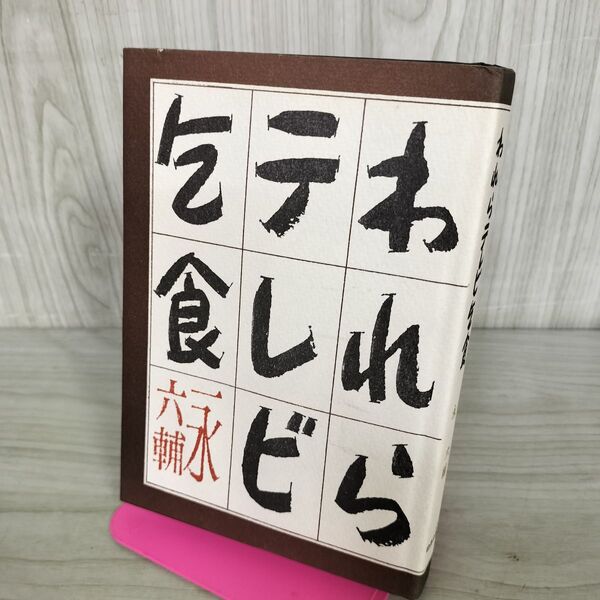 われら
テレビ
乞食
永
六輔
われらテレビ乞食